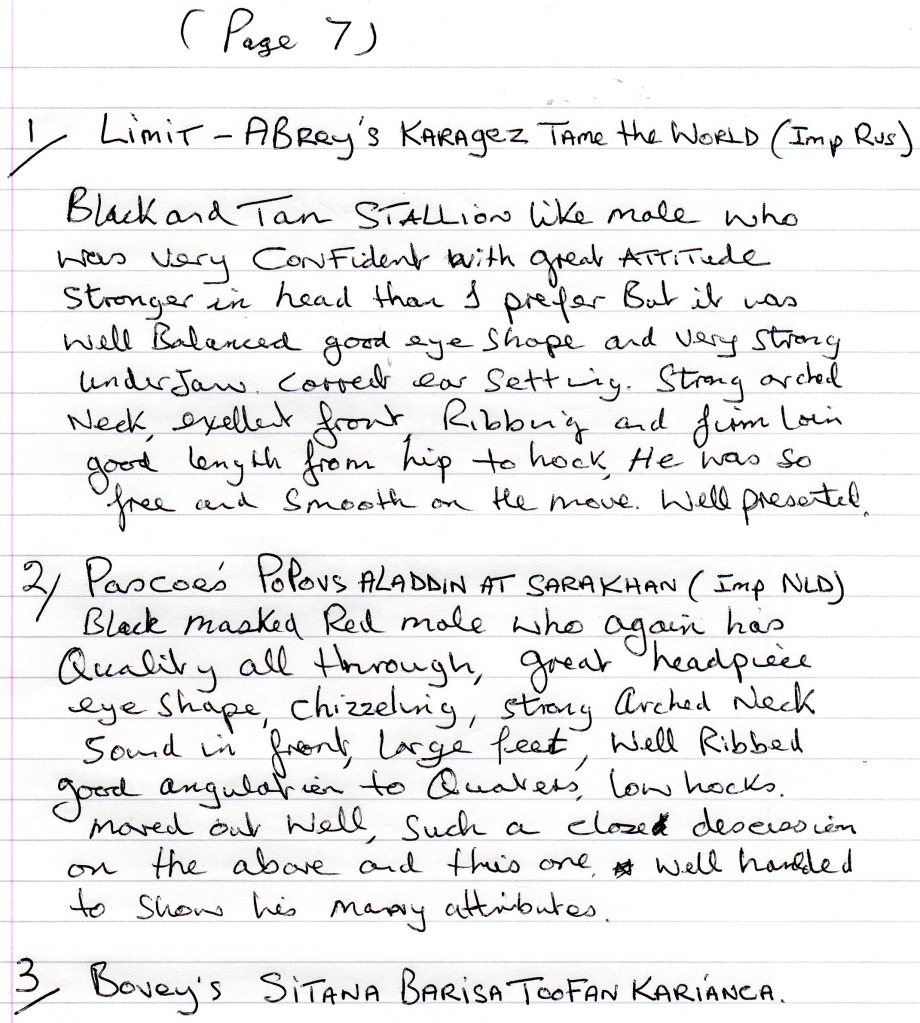 (Page 7)
1/ Limit - ABRey's KARAgEZ TAME the WORLD (Imp Rus)
Black and Tan STALLion like male who
was very Confident with great ATTiTude
Stronger in head than I prefer But it was
well Balanced good eye shape and very strong
underJaw. Correct ear Setting. Strong arched
Neck, exellent front, Ribbing and firm loin
good length from hip to hock, He was so
free and Smooth on the move. Well presented.
2/ Pascoe's POPOVS ALADDIN AT SARAKHAN (Imp NLD)
Black masked Red male who again has
Quality all through, great headpiece
eye shape, chizzeling, strong Arched Neck
Sound in front, large feet, Well Ribbed
good angulation to Quaters, low hocks.
moved out well, Such a close descission
on the above and this one, well handled
to show his many attributes.
3/ Bovey's SITANA BARISA TOOFAN KARIANCA.